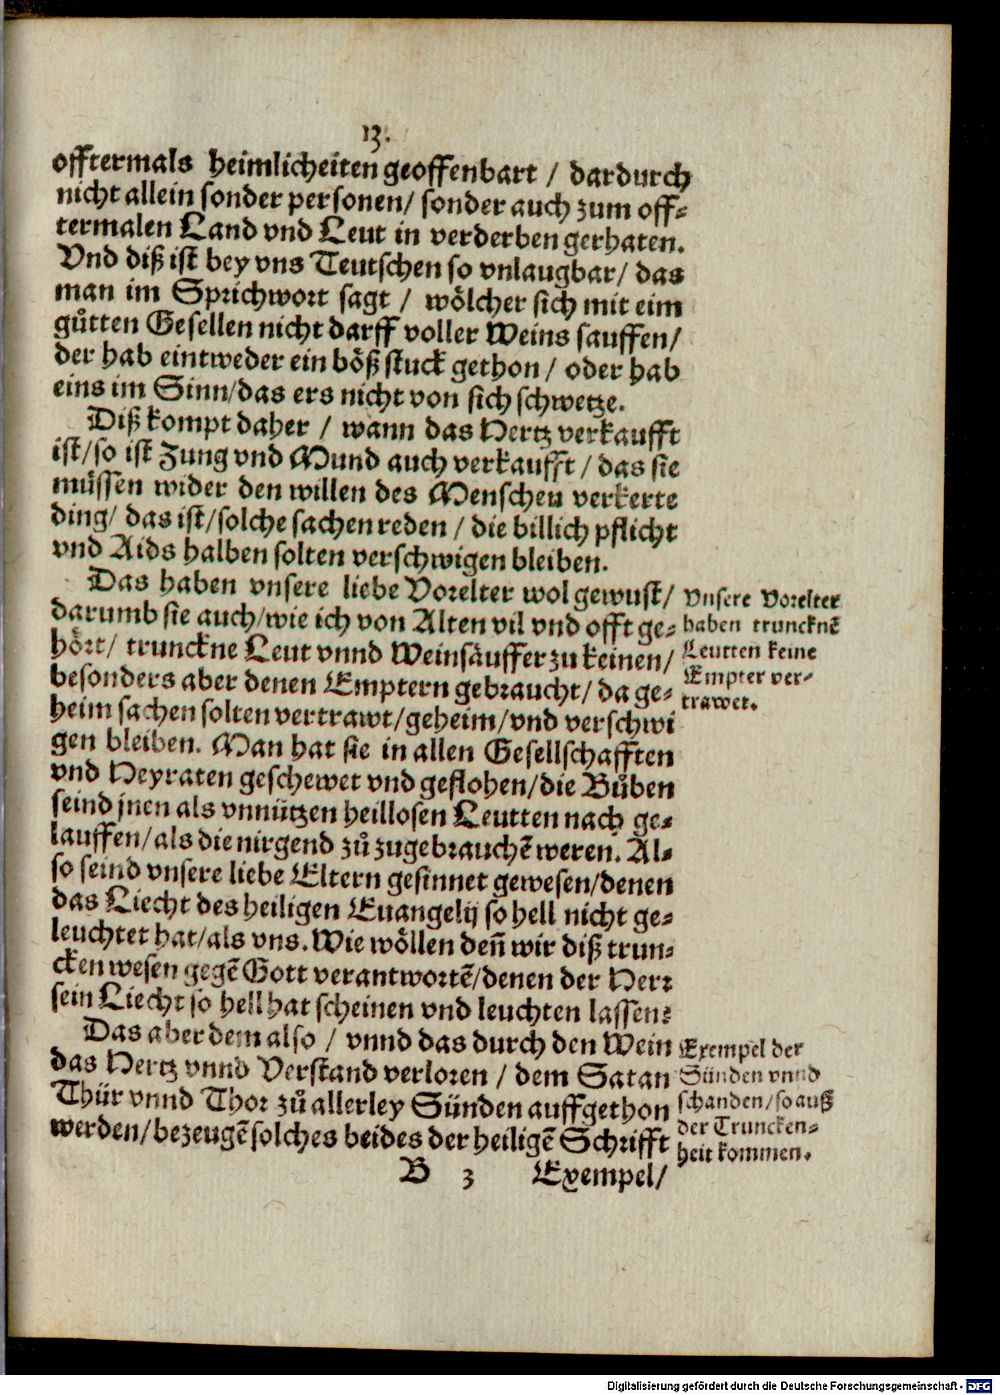 13.
offtermals heimlicheiten geoffenbart / dardurch
nicht allein sonder personen/ sonder auch zum off⸗
termalen Land vnd Leut in verderben gerhaten.
Vnd diß ist bey vns Teutschen so vnlaugbar/ das
man im Sprichwort sagt / wölcher sich mit eim
gůtten Gesellen nicht darff voller Weins sauffen/
der hab eintweder ein böß stuck gethon / oder hab
eins im Sinn/das ers nicht von sich schwetze.
Diß kompt daher / wann das Hertz verkaufft
ist/so ist Zung vnd Mund auch verkaufft / das sie
müssen wider den willen des Menschen verkerte
ding/ das ist/solche sachen reden / die billich pflicht
vnd Aids halben solten verschwigen bleiben.
Das haben vnsere liebe Vorelter wol gewust/
darumb sie auch/wie ich von Alten vil vnd offt ge⸗
hört/ trunckne Leut vnnd Weinsäuffer zu keinen/
besonders aber denen Emptern gebraucht/ da ge⸗
heim sachen solten vertrawt/geheim/vnd verschwi
gen bleiben. Man hat sie in allen Gesellschafften
vnd Heyraten geschewet vnd geflohen/die Bůben
seind jnen als vnnützen heillosen Leutten nach ge⸗
lauffen/als die nirgend zů zugebrauchẽ weren. Al⸗
so seind vnsere liebe Eltern gesinnet gewesen/denen
das Liecht des heiligen Euangelij so hell nicht ge⸗
leuchtet hat/als vns. Wie wöllen deñ wir diß trun⸗
cken wesen gegẽ Gott verantwortẽ/denen der Herr
sein Liecht so hell hat scheinen vnd leuchten lassen?
Das aber dem also / vnnd das durch den Wein
das Hertz vnnd Verstand verloren / dem Satan
Thür vnnd Thor zů allerley Sünden auffgethon
werden/bezeugẽ solches beides der heiligẽ Schrifft
B 3 Exempel/
Vnsere Vorelter
haben truncknẽ
Leutten keine
Empter ver⸗
trawet.
Exempel der
Sünden vnnd
schanden/so auß
der Truncken⸗
heit kommen.
Digitalisierung gefördert durch die Deutsche Forschungsgemeinschaft - DFG